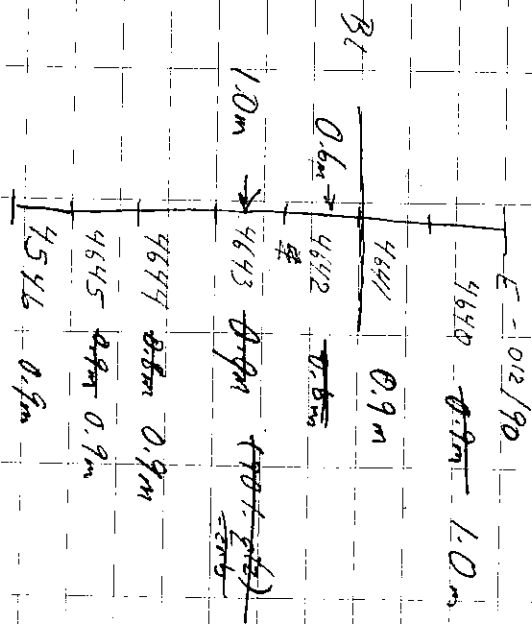 E-012/90
4640 0.9m 1.0m
4641 0.9m
BL
0.6m → 4642 0.6m
1.0m 4643 0.9m
4644 0.8m 0.9m
4645 0.9m 0.9m
4546 0.9m